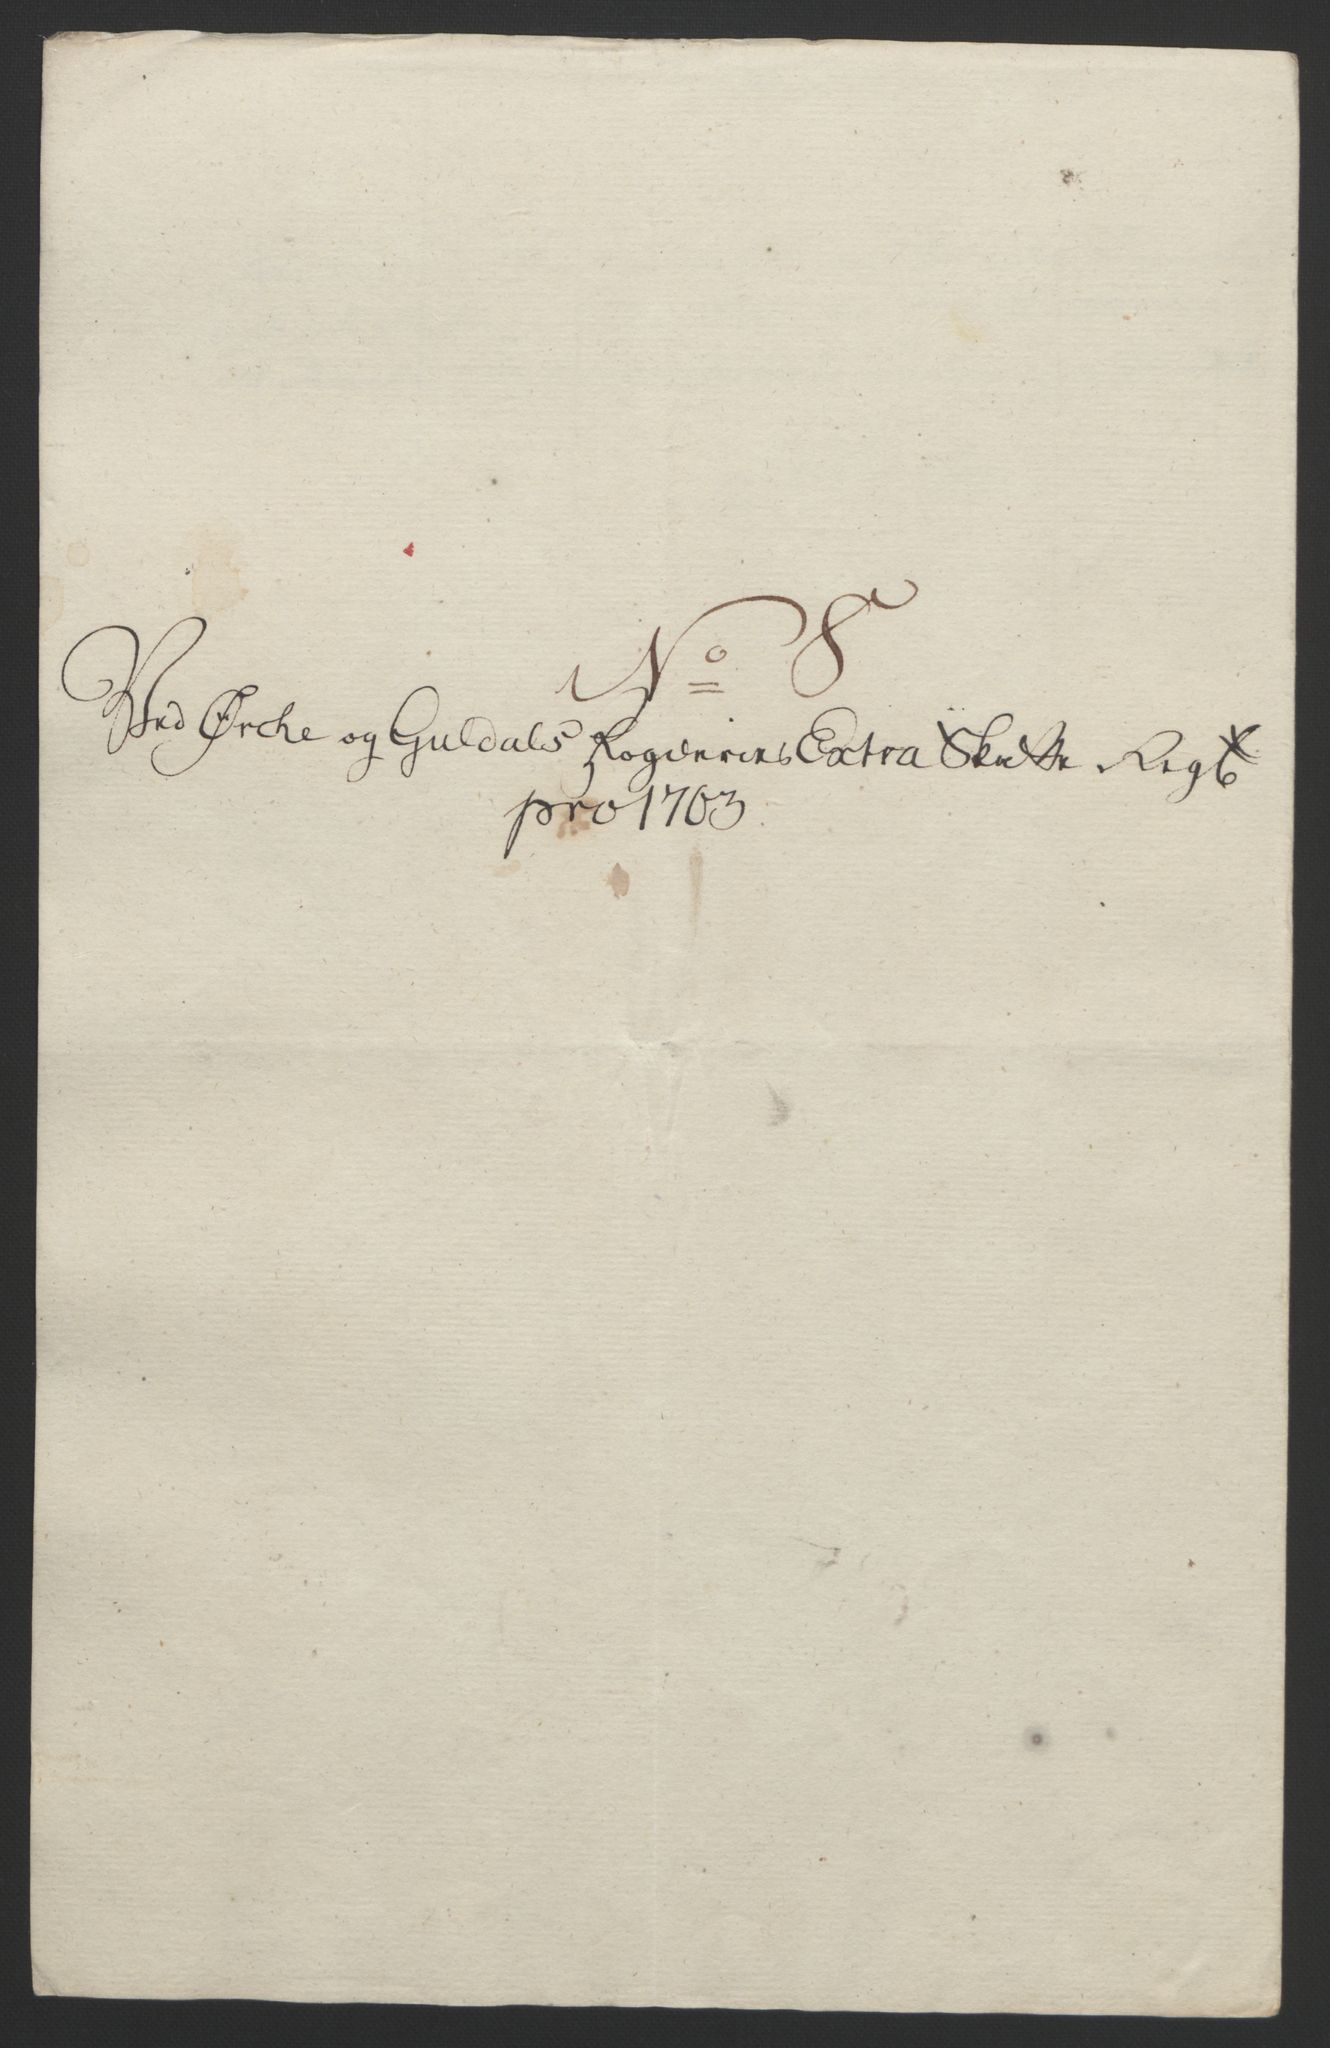 No 8
Ved Ørche og Guldals Fogderies Extra Skatte Regb
pro 1703